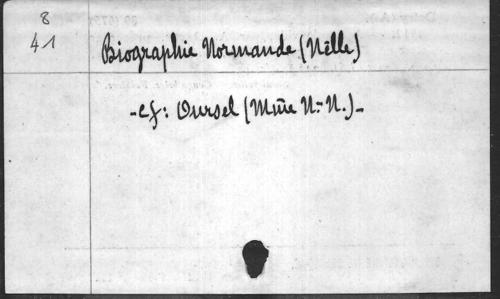 8
41
Biographie Normande (Nelle)
-cf: Oursel (Mme N.-N.)-